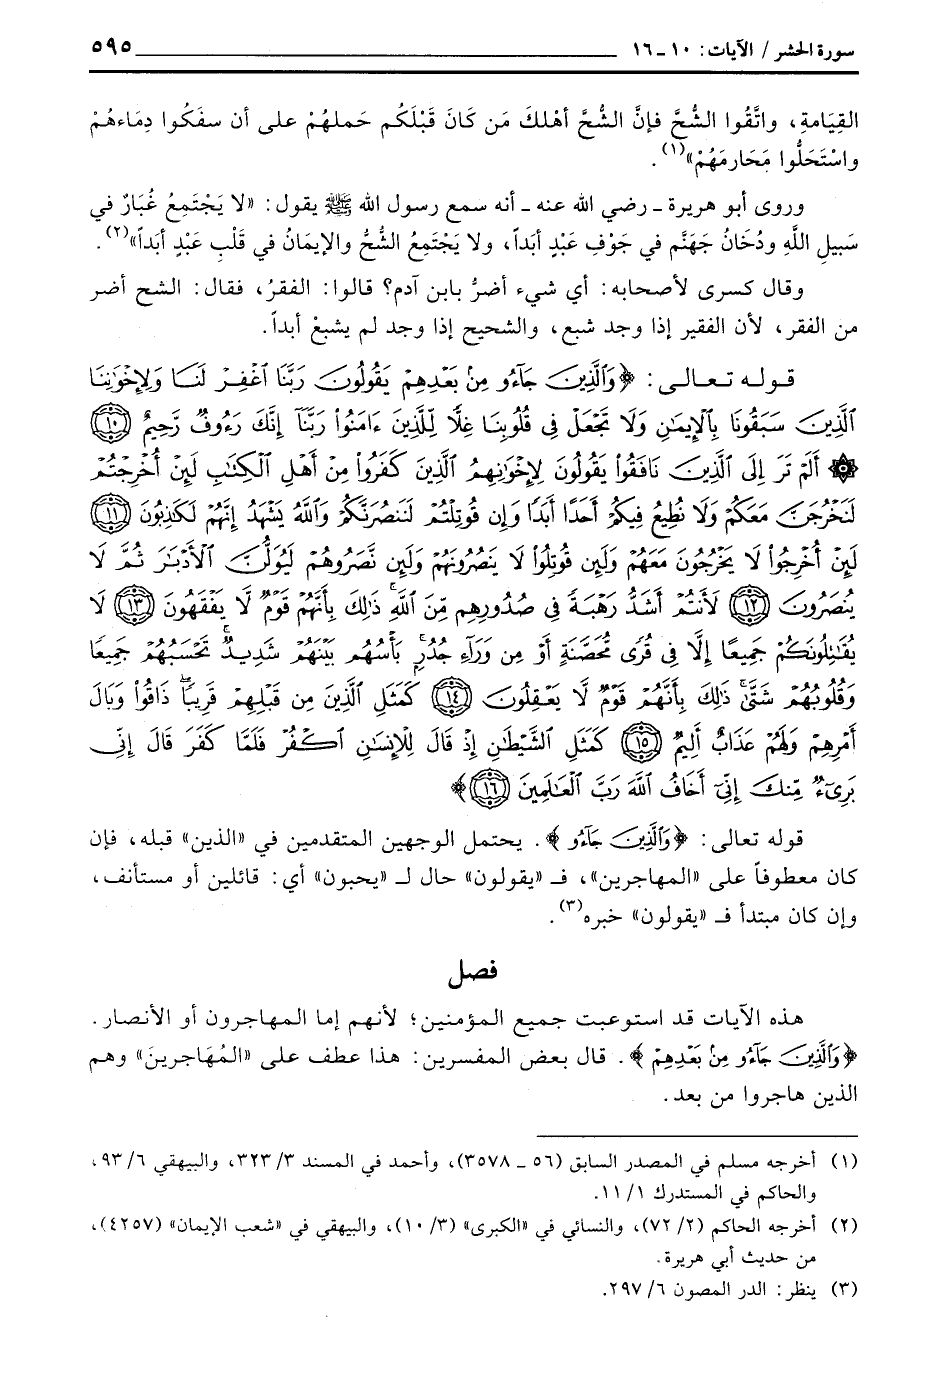 سورة الحشر / الآيات: ١٠ ـ ١٦ ٥٩٥
القِيَامةِ، واتَّقُوا الشُّحَّ فإنَّ الشُّحَّ أهْلكَ مَن كَانَ قَبْلَكُم حَملهُمْ على أن سفَكُوا دِمَاءهُمْ
واسْتَحَلُّوا مَحَارمَهُمْ»(١).
وروى أبو هريرة ـ رضي الله عنه ـ أنه سمع رسول الله ﷺ يقول: «لا يَجْتَمِعُ غُبَارٌ في
سَبيلِ اللَّهِ ودُخَانُ جَهَنَّم في جَوْفِ عَبْدٍ أبَداً، ولا يَجْتَمِعُ الشُّحُّ والإيمَانُ في قَلْبِ عَبْدٍ أبَداً»(٢).
وقال كسرى لأصحابه: أي شيء أضرُّ بابن آدم؟ قالوا: الفقرُ، فقال: الشح أضر
من الفقر، لأن الفقير إذا وجد شبع، والشحيح إذا وجد لم يشبعْ أبداً.
قوله تعالى: ﴿وَٱلَّذِينَ جَآءُو مِنۢ بَعۡدِهِمۡ يَقُولُونَ رَبَّنَا ٱغۡفِرۡ لَنَا وَلِإِخۡوَٰنِنَا
ٱلَّذِينَ سَبَقُونَا بِٱلۡإِيمَٰنِ وَلَا تَجۡعَلۡ فِي قُلُوبِنَا غِلّٗا لِّلَّذِينَ ءَامَنُواْ رَبَّنَآ إِنَّكَ رَءُوفٞ رَّحِيمٌ ١٠
۞ أَلَمۡ تَرَ إِلَى ٱلَّذِينَ نَافَقُواْ يَقُولُونَ لِإِخۡوَٰنِهِمُ ٱلَّذِينَ كَفَرُواْ مِنۡ أَهۡلِ ٱلۡكِتَٰبِ لَئِنۡ أُخۡرِجۡتُمۡ
لَنَخۡرُجَنَّ مَعَكُمۡ وَلَا نُطِيعُ فِيكُمۡ أَحَدًا أَبَدٗا وَإِن قُوتِلۡتُمۡ لَنَنصُرَنَّكُمۡ وَٱللَّهُ يَشۡهَدُ إِنَّهُمۡ لَكَٰذِبُونَ ١١
لَئِنۡ أُخۡرِجُواْ لَا يَخۡرُجُونَ مَعَهُمۡ وَلَئِن قُوتِلُواْ لَا يَنصُرُونَهُمۡ وَلَئِن نَّصَرُوهُمۡ لَيُوَلُّنَّ ٱلۡأَدۡبَٰرَ ثُمَّ لَا
يُنصَرُونَ ١٢ لَأَنتُمۡ أَشَدُّ رَهۡبَةٗ فِي صُدُورِهِم مِّنَ ٱللَّهِۚ ذَٰلِكَ بِأَنَّهُمۡ قَوۡمٞ لَّا يَفۡقَهُونَ ١٣ لَا
يُقَٰتِلُونَكُمۡ جَمِيعًا إِلَّا فِي قُرٗى مُّحَصَّنَةٍ أَوۡ مِن وَرَآءِ جُدُرِۭۚ بَأۡسُهُم بَيۡنَهُمۡ شَدِيدٞۚ تَحۡسَبُهُمۡ جَمِيعٗا
وَقُلُوبُهُمۡ شَتَّىٰۚ ذَٰلِكَ بِأَنَّهُمۡ قَوۡمٞ لَّا يَعۡقِلُونَ ١٤ كَمَثَلِ ٱلَّذِينَ مِن قَبۡلِهِمۡ قَرِيبٗاۖ ذَاقُواْ وَبَالَ
أَمۡرِهِمۡ وَلَهُمۡ عَذَابٌ أَلِيمٞ ١٥ كَمَثَلِ ٱلشَّيۡطَٰنِ إِذۡ قَالَ لِلۡإِنسَٰنِ ٱكۡفُرۡ فَلَمَّا كَفَرَ قَالَ إِنِّي
بَرِيٓءٞ مِّنكَ إِنِّيٓ أَخَافُ ٱللَّهَ رَبَّ ٱلۡعَٰلَمِينَ ١٦﴾
قوله تعالى: ﴿وَٱلَّذِينَ جَآءُو﴾. يحتمل الوجهين المتقدمين في «الذين» قبله، فإن
كان معطوفاً على «المهاجرين»، فـ «يقولون» حال لـ «يحبون» أي: قائلين أو مستأنف،
وإن كان مبتدأ فـ «يقولون» خبره(٣).
فصل
هذه الآيات قد استوعبت جميع المؤمنين؛ لأنهم إما المهاجرون أو الأنصار.
﴿وَٱلَّذِينَ جَآءُو مِنۢ بَعۡدِهِمۡ﴾. قال بعض المفسرين: هذا عطف على «المُهَاجرينَ» وهم
الذين هاجروا من بعد.
(١) أخرجه مسلم في المصدر السابق (٥٦ ـ ٣٥٧٨)، وأحمد في المسند ٣/ ٣٢٣، والبيهقي ٦/ ٩٣،
والحاكم في المستدرك ١/ ١١.
(٢) أخرجه الحاكم (٢/ ٧٢)، والنسائي في «الكبرى» (٣/ ١٠)، والبيهقي في «شعب الإيمان» (٤٢٥٧)،
من حديث أبي هريرة.
(٣) ينظر: الدر المصون ٦/ ٢٩٧.